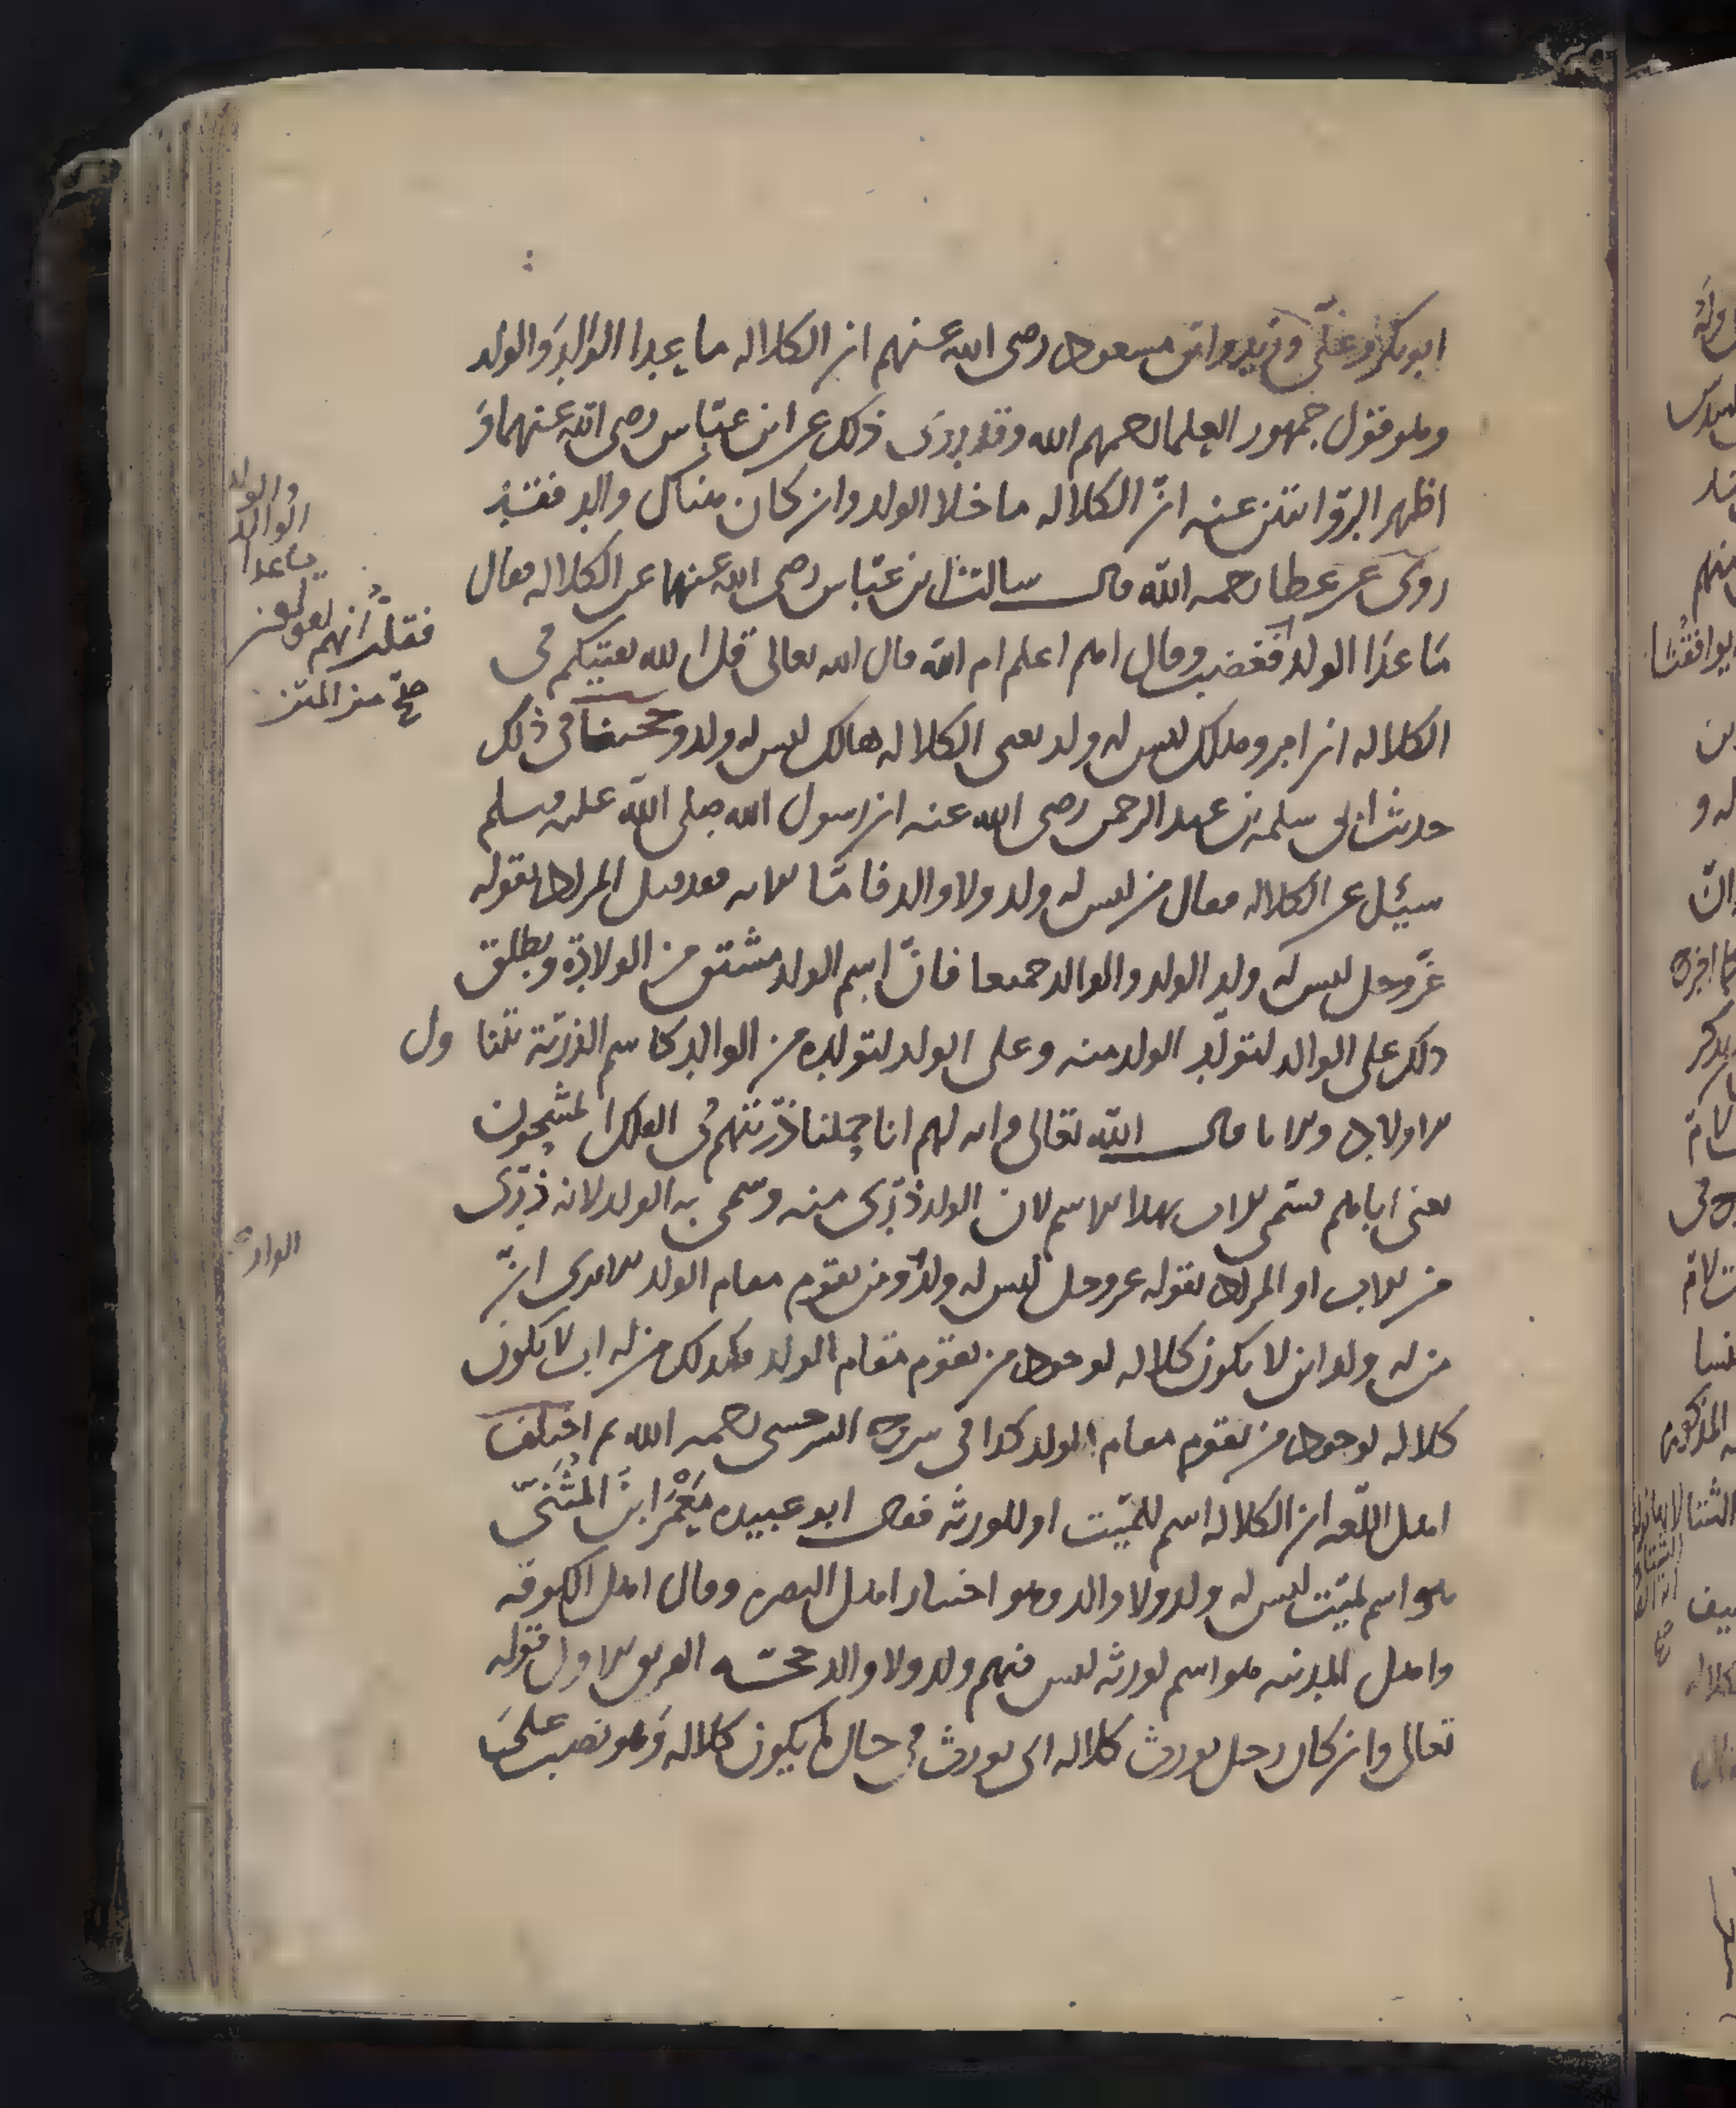 ابوبكر وعلي وزيد وابن مسعود رضى الله عنهم ان الكلاله ما عدا الوالد والولد
وهو قول جمهور العلما رحمهم الله وقد روى ذلك عن ابن عباس رضى الله عنهما و
اظهر الروايتين عنه ان الكلاله ما خلا الولد وان كان هناك والد فقد
روى عن عطا رحمه الله قال سالت ابن عباس رضى الله عنهما عن الكلاله فقال
ما عدا الولد فغضب وقال اهم اعلم ام الله قال الله تعالى قل الله يفتيكم فى
الكلاله ان امرو هلك ليس له ولد يعنى الكلاله هالك ليس له ولد وحجتنا فى ذلك
حديث ابى سلمة بن عبد الرحمن رضى الله عنه ان رسول الله صلى الله عليه وسلم
سئل عن الكلاله فقال من ليس له ولد ولا والد فاما الايه فقد قيل المراد بقوله
عز وجل ليس له ولد الولد والوالد جميعا فان اسم الولد مشتق من الولادة ويطلق
ذلك على الوالد لتولد الولد منه وعلى الولد لتولده من الوالد كاسم الذرية تتناول
الاولاد والابا قال الله تعالى وايه لهم انا حملنا ذريتهم فى الفلك المشحون
يعنى اباهم فسمى الاب بهذا الاسم لان الولد ذرى منه وسمى به الولد لانه ذرى
من الاب او المراد بقوله عز وجل ليس له ولد ومن يقوم مقام الولد الا يرى ان
من له ولد ابن لا يكون كلاله لوجود من يقوم مقام الولد فكذلك من له اب لا يكون
كلاله لوجود من يقوم مقام الولد كذا فى السرخسى رحمه الله ثم اختلف
اهل اللغه ان الكلاله اسم للميت او للورثه فقال ابو عبيده معمر ابن المثنى
هو اسم لميت ليس له ولد ولا والد وهو اختيار اهل البصره وقال اهل الكوفه
واهل المدينه هو اسم لورثه ليس فيهم ولد ولا والد حجه الفريق الاول قوله
تعالى وان كان رجل يورث كلاله اى يورث فى حال ما يكون كلاله وهو نصب على
فقلت انهم يقولون
ما عدا
الوالد
والولد
صح من المتن
الوالد